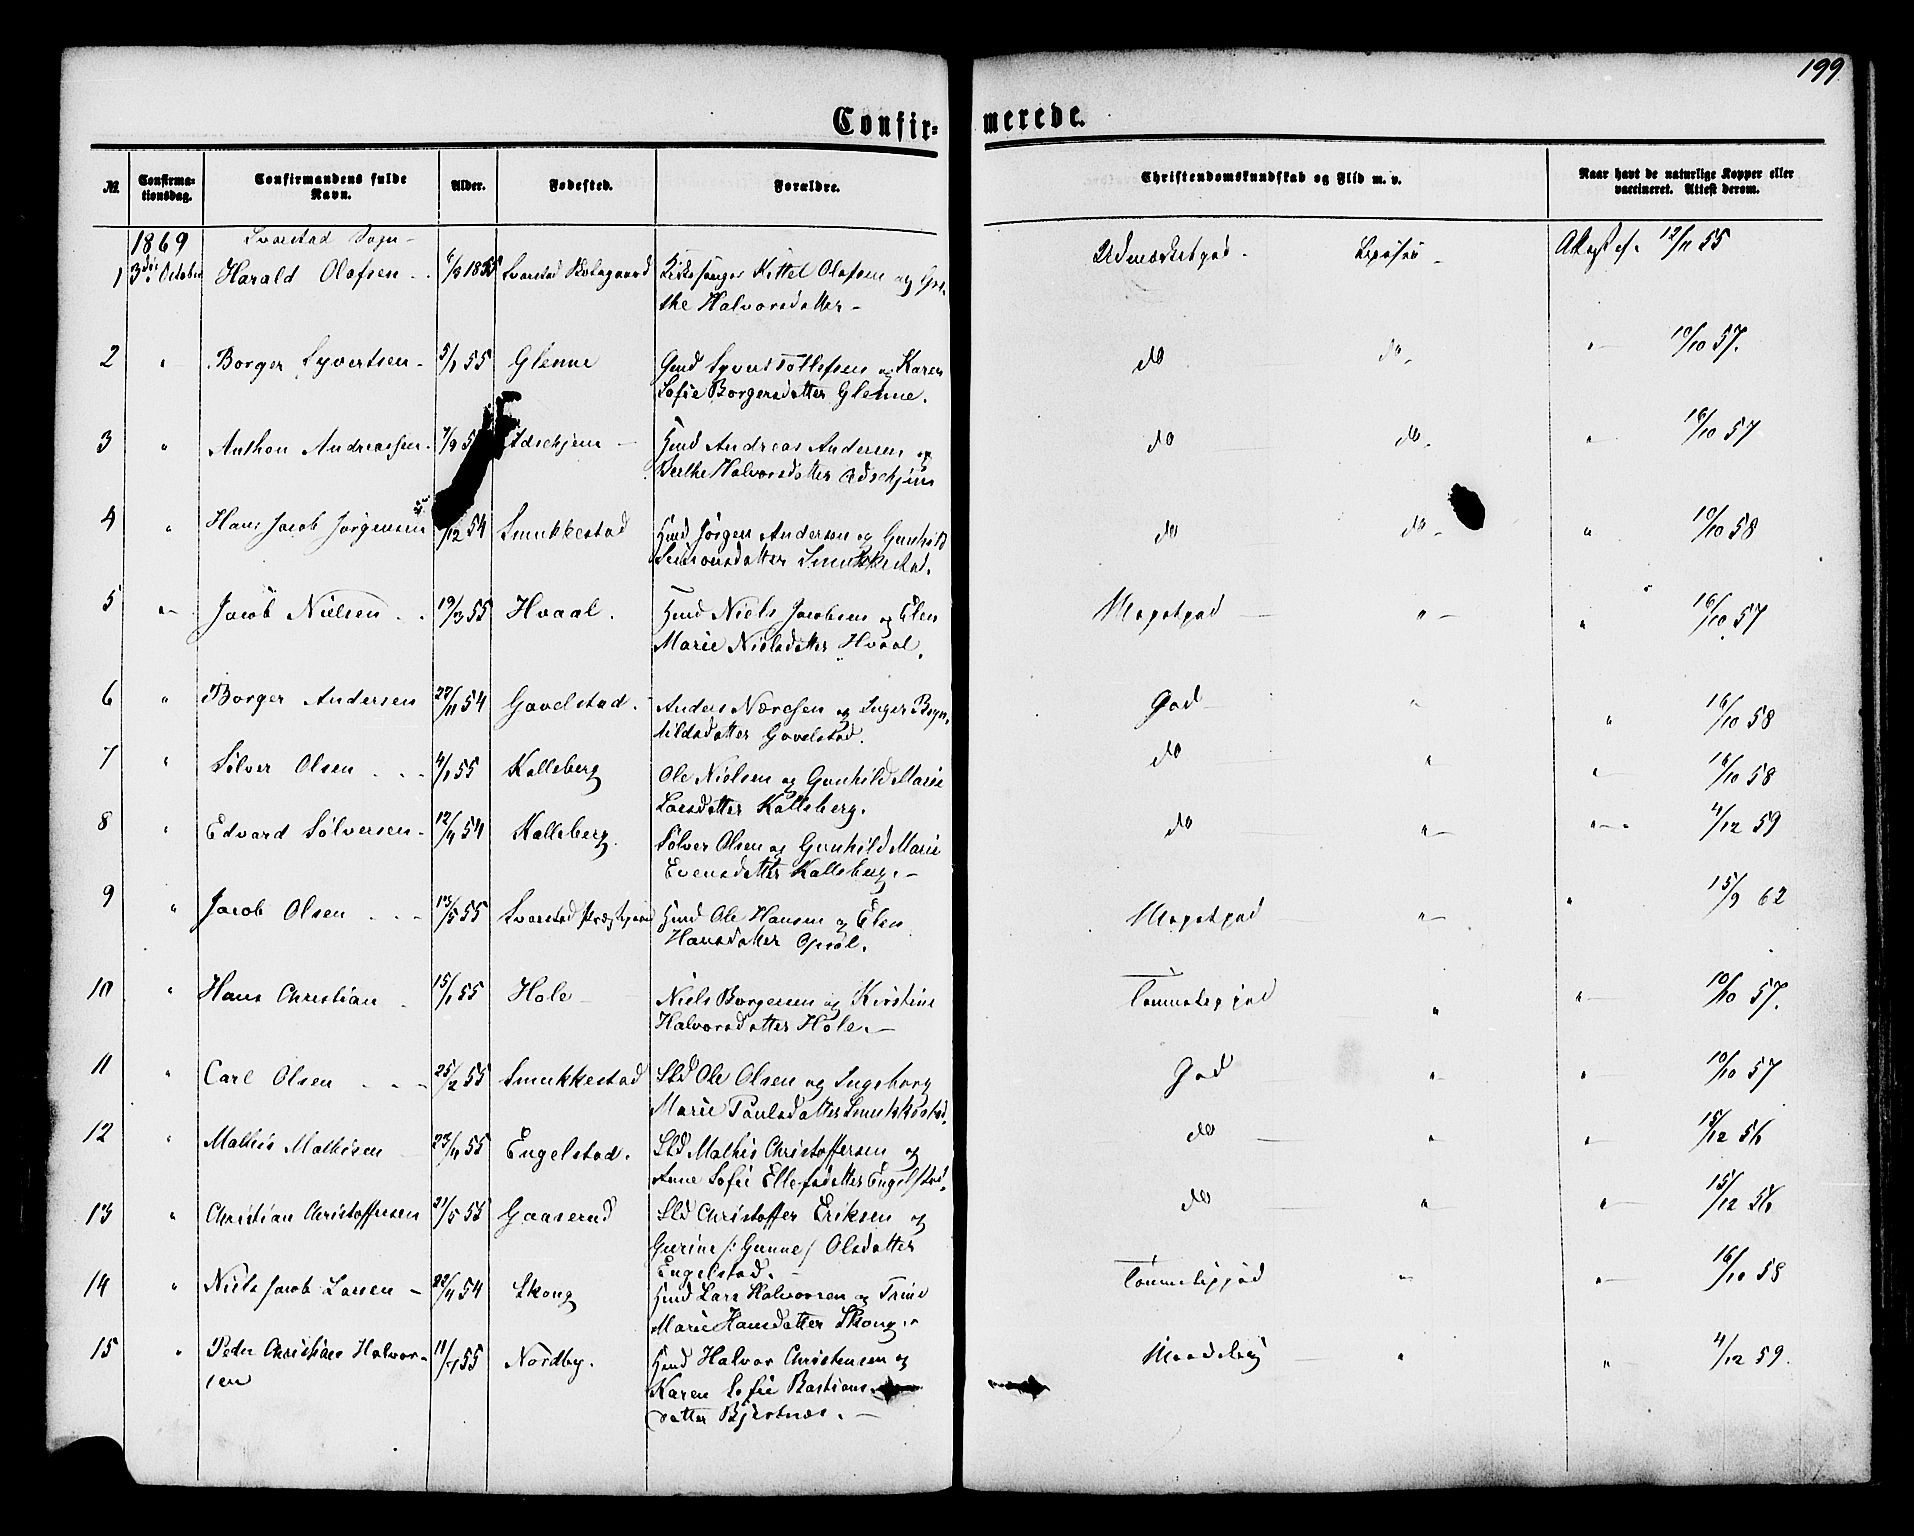 199
Confir- merede.
№. Confirmationsdag. Confirmandens fulde Navn. Alder. Fødested. Forældre. Christendomskundskab og Flid m. v. Naar havt de naturlige Kopper eller vaccineret. Attest derom.
1869 Svarstad Sogn
1 3die October Harald Olafsen 6/8 1855 Svarstad Kittel Olafsen og
the Halvorsdatter
12/11 55
2 " Borger Syvertsen 5/1 55 Glenne Syvert Tollefsen og Karen
Sofie Borgersdatter Glenne.
do do 10/10 57.
3 " Anthon Andreassen Hmd Andreas Andersen og
Berthe Halvorsdatter
do do " 16/10 57
4 " Hans Jacob Jørgensen /12 54 Smukkestad Hmd Jørgen Andersen og Gunhild
Simonsdatter Smukkestad.
do do " 10/10 58
5 " Jacob Nielsen 19/3 55 Hvaal. Hmd Niels Jacobsen og Elen
Marie Nielsdatter Hvaal.
Megetgod " " 16/10 57
6 " Borger Andersen 22/11 54 Gavelstad. Anders og Inger
Gavelstad.
God " " 16/10 58
7 " Sølver Olsen 4/1 55 Kalleberg Ole Nielsen og Gunhild Marie
Larsdatter Kalleberg.
do " " 16/10 58
8 " Edvard Sølversen 12/4 54 Kalleberg. Sølver Olsen og Gunhild Marie
Evensdatter Kalleberg.
do " " 4/12 59
9 " Jacob Olsen 13/5 55 Svarstad Præstegaard Hmd Ole Hansen og Elen
Hansdatter
Megetgod " " 15/9 62
10 " Hans Christian 15/1 55 Hole Niels Borgersen og Kirstine
Halvorsdatter Hole.
Temmeliggod " " 10/10 57.
11 " Carl Olsen 25/2 55 Smukkestad Sld Ole Olsen og Ingeborg
Marie Paulsdatter Smukkestad.
God " " 10/10 57
12 " Mathis Mathisen 23/4 55 Engelstad. Sld Mathis Christoffersen og
Anne Sofie Ellefsdatter Engelstad.
do " " 15/12 56
13 " Christian Christoffersen 21/5 55 Gaaserud Sld Christoffer Eriksen og
Gurine /: Gunne / Olsdatter
Engelstad.
do " " 15/12 56
14 " Niels Jacob Larsen 22/4 54 Skoug Hmd Lars Halvorsen og Trine
Marie Hansdatter Skoug.
Temmeliggod " " 16/10 58
15 " Peder Christian Halvor-
sen
55 Nordby. Hmd Halvor Christensen og
Karen Sofie Bastians-
datter
Maadelig " " 4/12 59.